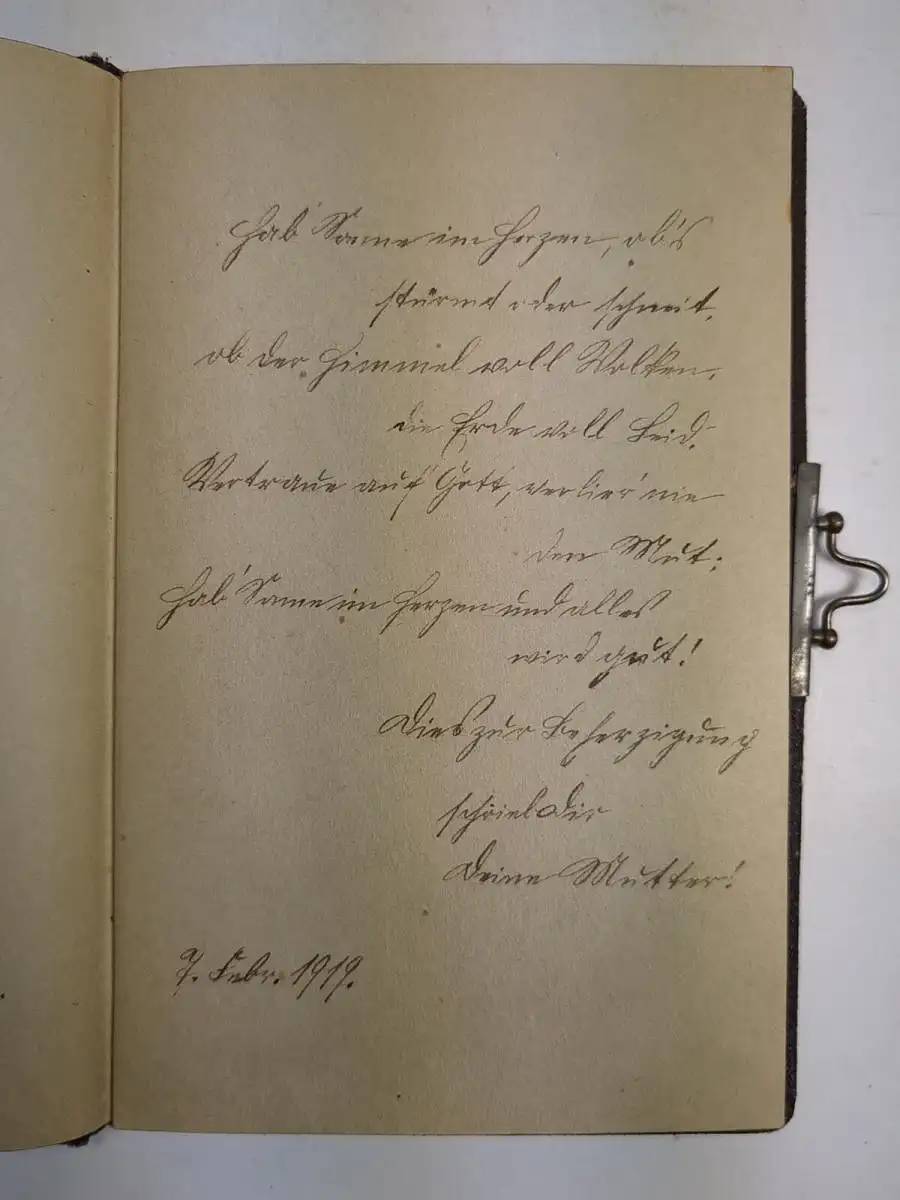 Hab' Sonne im Herzen, ob's
stürmt oder schneit,
ob der Himmel voll Wolken,
die Erde voll Leid.
Vertraue auf Gott, verlier' nie
den Mut;
Hab' Sonne im Herzen und alles
wird gut!
Dies zur Beherzigung
schrieb Dir
Deine Mutter!
7. Febr. 1919.